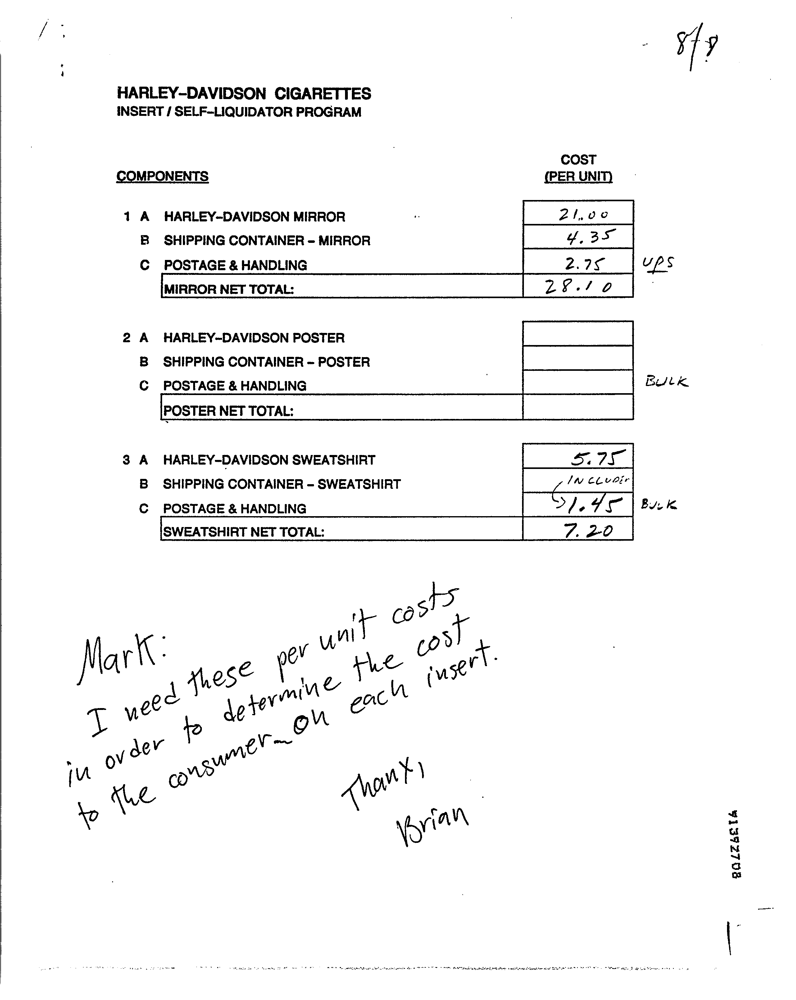 8/8
HARLEY–DAVIDSON CIGARETTES
INSERT / SELF–LIQUIDATOR PROGRAM
COST
COMPONENTS (PER UNIT)
1 A HARLEY–DAVIDSON MIRROR 21.00
B SHIPPING CONTAINER – MIRROR 4.35
C POSTAGE & HANDLING 2.75 UPS
MIRROR NET TOTAL: 28.10
2 A HARLEY–DAVIDSON POSTER
B SHIPPING CONTAINER – POSTER
C POSTAGE & HANDLING BULK
POSTER NET TOTAL:
3 A HARLEY–DAVIDSON SWEATSHIRT 5.75
B SHIPPING CONTAINER – SWEATSHIRT INCLUDED
C POSTAGE & HANDLING 1.45 BULK
SWEATSHIRT NET TOTAL: 7.20
Mark:
I need these per unit costs
in order to determine the cost
to the consumer on each insert.
Thanx,
Brian
91392708